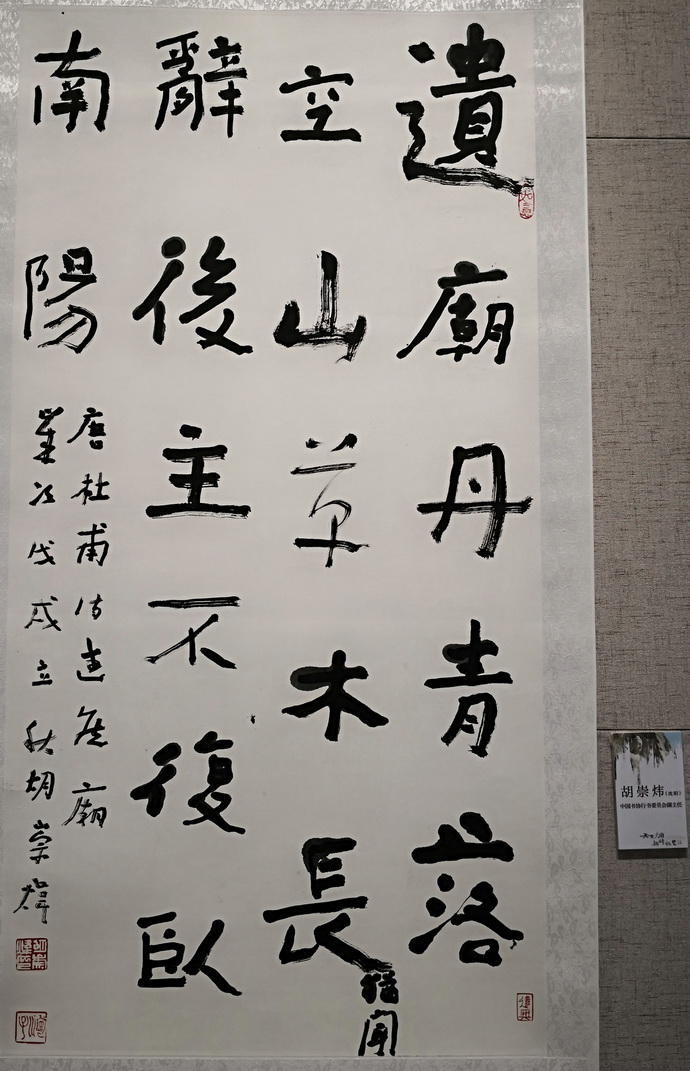 遺廟丹青落
空山草木長猶聞
辭後主不復臥
南陽
唐杜甫詩武侯廟
歲次戊戌立秋胡崇煒
胡崇炜(沈阳)
中国书协行书委员会副主任